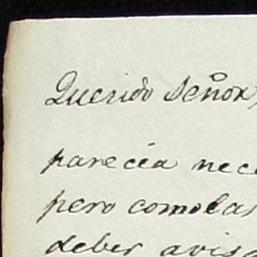 Querido Señor,
parecia nece
pero como las
deber avisa